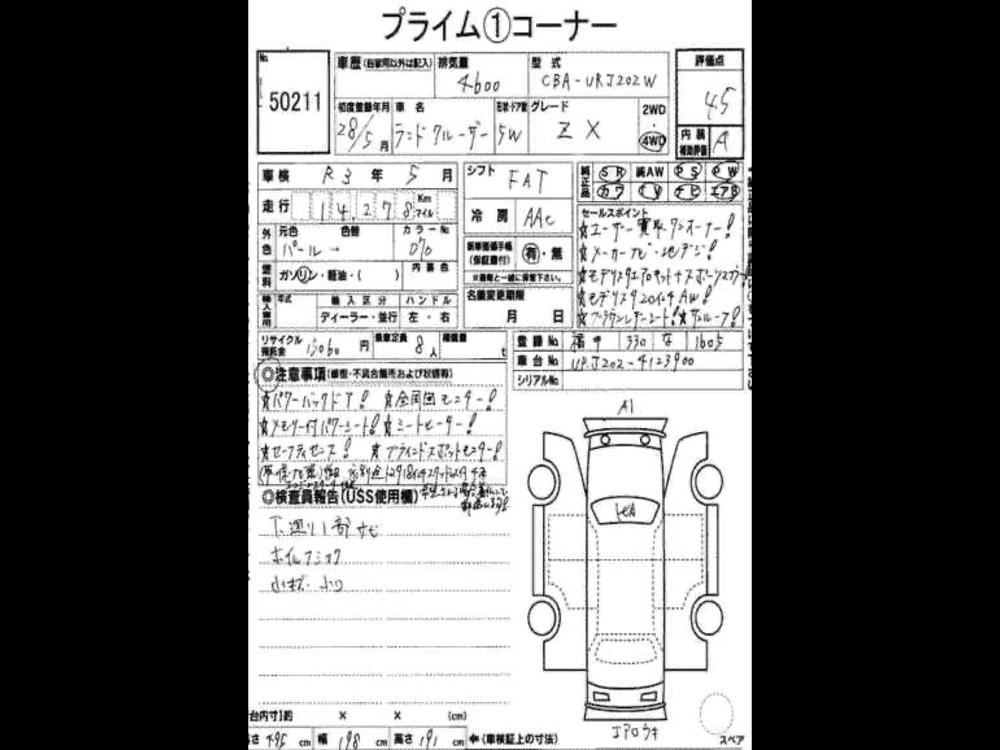 プライム①コーナー
No 50211
車歴(自家用以外は記入) 排気量 4600 型式 CBA-URJ202W
評価点 4.5
初度登録年月 28/5月 車名 ランドクルーザー 形状・ドア数 5W グレード ZX 2WD・4WD
内装補助評価 A
車検 R3年 5月 シフト FAT
純正品 SR 純AW PS PW
カワ TV ナビ エアB
走行 14,278 Km マイル 冷房 AAC
セールスポイント
★ユーザー買取ワンオーナー!
外色 元色 パール 色替 → カラーNo 070 新車整備手帳(保証書付) 有・無
★メーカーナビ・地デジ!
燃料 ガソリン・軽油・( ) 内装色 ※車両と一緒に保管下さい。
★モデリスタエアロキット+スポーツマフラー
輸入車用 年式 輸入区分 ハンドル 名義変更期限
★モデリスタ20インチAW!
ディーラー・並行 左・右 月 日
★ブラウンレザーシート!★サンルーフ!
リサイクル預託金 円 乗車定員 8人 積載量 t
登録No 330 な 1605
車台No URJ202-4123900
シリアルNo
◎注意事項(修理・不具合箇所および状態等)
★パワーバックドア! ★全周囲モニター!
★メモリー付パワーシート! ★シートヒーター!
★セーフティセンス! ★ブラインドスポットモニター!
◎検査員報告(USS使用欄)
下廻り1部サビ
ホイルフショク
小キズ・小凹
A1
エアロウキ
スペア
台内寸】約 × × (cm)
長さ 495 cm 幅 198 cm 高さ 191 cm ←(車検証上の寸法)